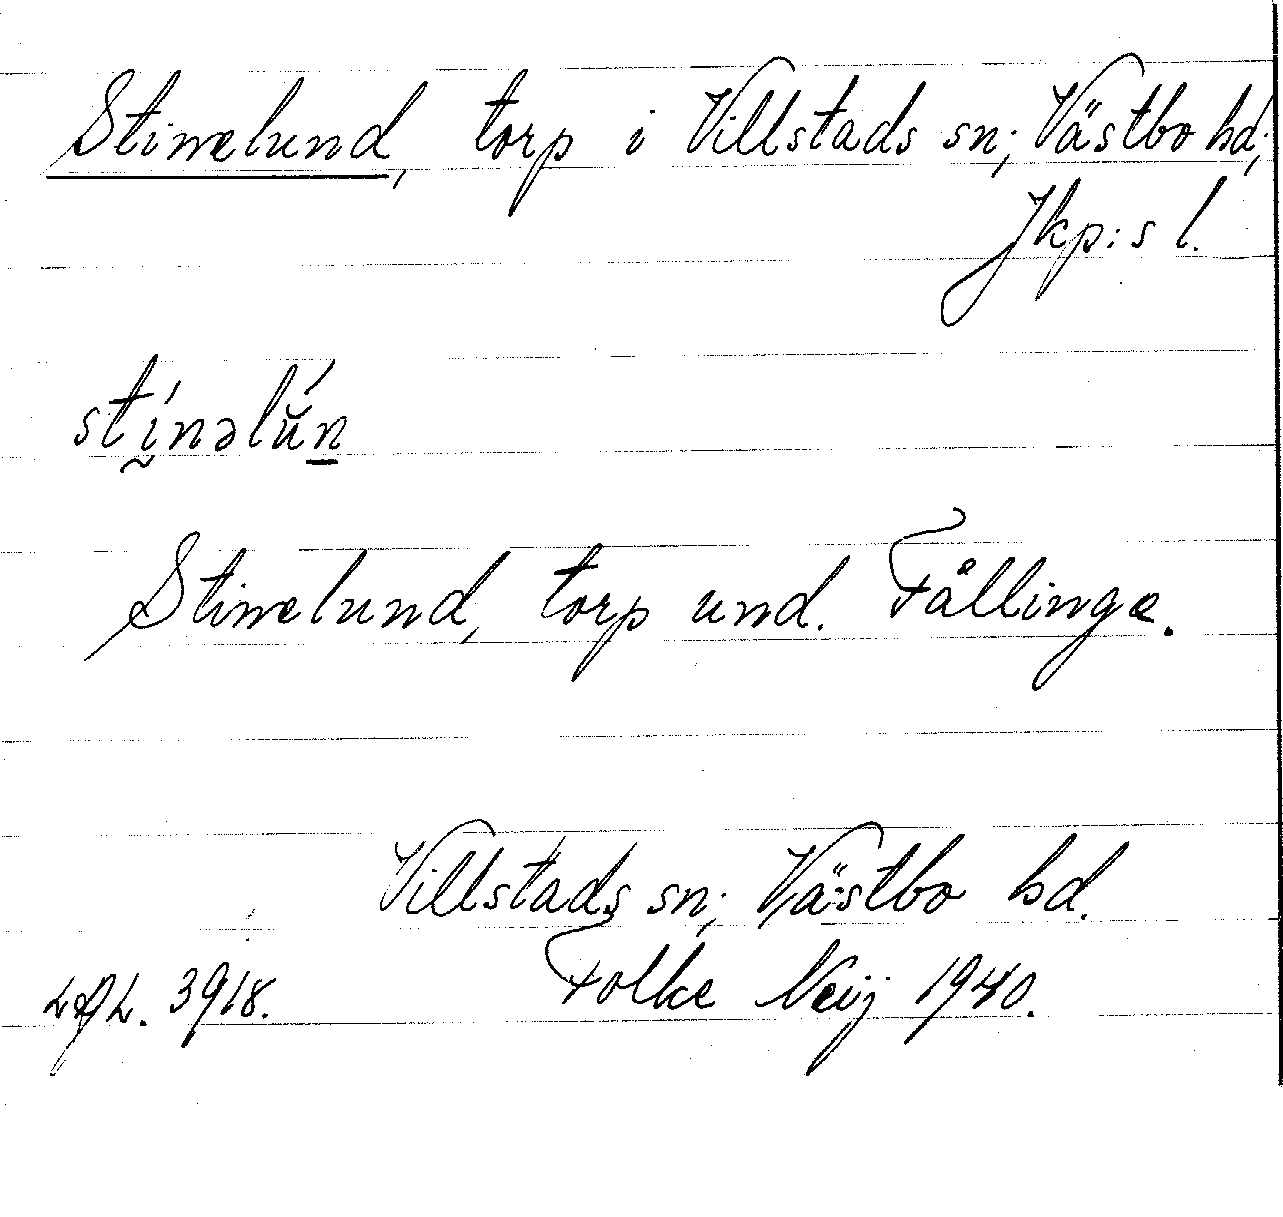 Stinelund, torp i Villstads sn; Västbo hd;
Jkp:s l.
stḭ́nəlŭ́n̲
Stinelund, torp und. Fållinge.
Villstads sn; Västbo hd.
Folke Neij 1940.
3918.